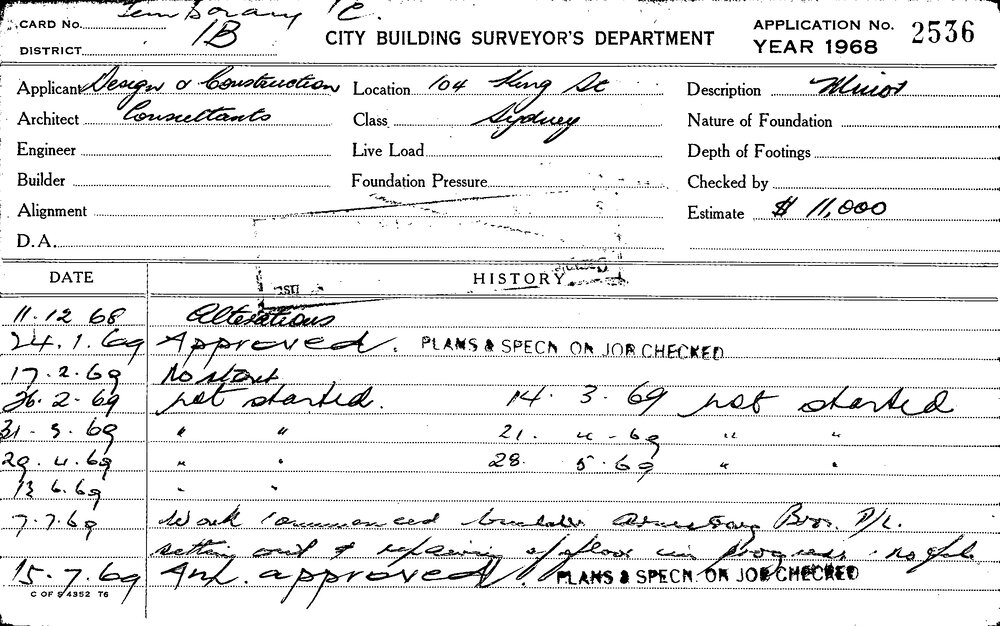 Temporary C.
CARD No. 1B
DISTRICT
CITY BUILDING SURVEYOR'S DEPARTMENT
APPLICATION No. 2536
YEAR 1968
Applicant Design & Construction Location 104 King St Description Minor
Architect Consultants Class Sydney Nature of Foundation
Engineer Live Load Depth of Footings
Builder Foundation Pressure Checked by
Alignment Estimate $ 11,000
D.A.
DATE HISTORY
11.12 68 Alterations
24.1.69 Approved. PLANS & SPECN ON JOB CHECKED
17.2.69 No start
26.2.69 not started. 14.3.69 not started
31-3.69 " " 21.4-69 " "
29.4.69 " " 28.5.69 " "
13 6.69 " "
7.7.69 Work commenced builder Armstrong Bros. P/L.
setting out & repairing of floor in progress
15.7.69 approved. PLANS & SPECN. ON JOB CHECKED
C OF S 4352 T6